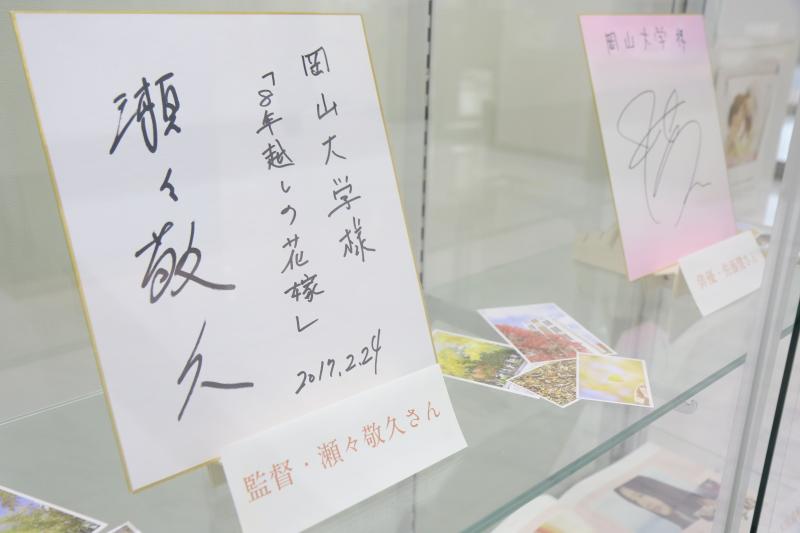 岡山大学様
「8年越しの花嫁」
2017.2.24
瀬々敬久
監督・瀬々敬久さん
岡山大学様
俳優・佐藤健さん